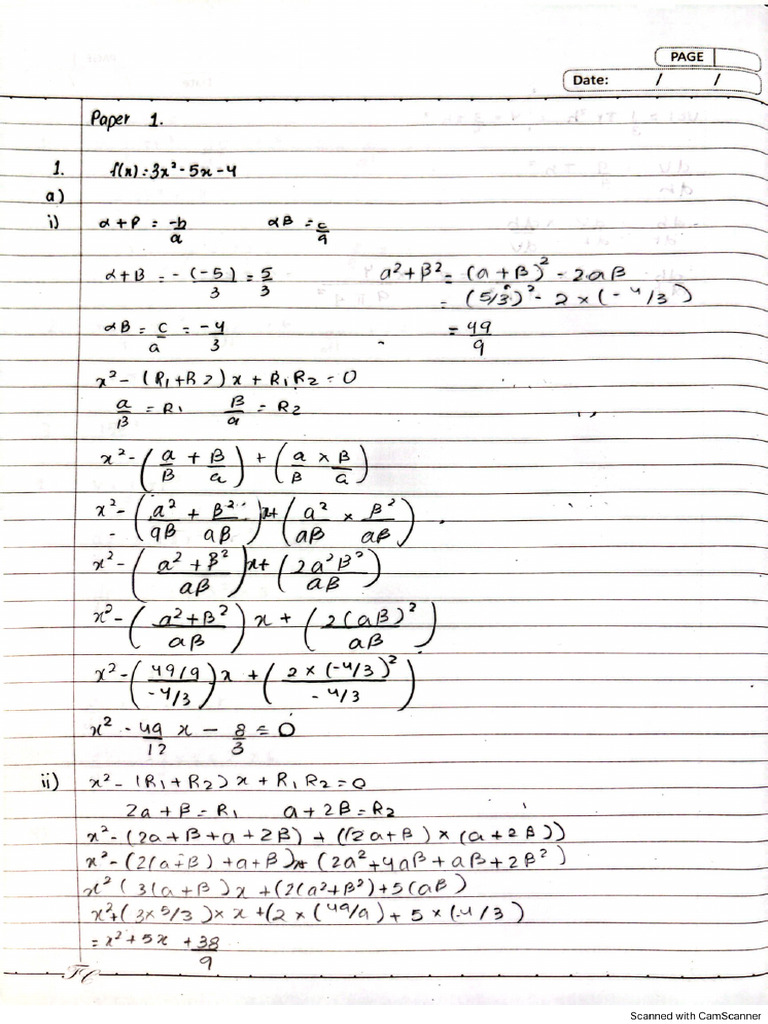 PAGE
Date: / /
Paper 1.
1. f(x) = 3x² - 5x - 4
a)
i) α + β = -b/a αβ = c/a
α+β = -(-5)/3 = 5/3 a²+β² = (a+β)² - 2aβ
= (5/3)² - 2 × (-4/3)
αβ = c/a = -4/3 = 49/9
x² - (R₁+R2)x + R₁R₂ = 0
a/β = R₁ β/a = R₂
x² - (a/β + β/a) + (a/β × β/a)
x² - (a²/aβ + β²/aβ)x + (a²/aβ × β²/aβ)
x² - (a² + β²/aβ)x + (2a²β²/aβ)
x² - (a²+β²/aβ)x + (2(aβ)²/aβ)
x² - (49/9/-4/3)x + (2×(-4/3)²/-4/3)
x² - 49/12 x - 8/3 = 0
ii) x² - (R₁+R₂)x + R₁R₂ = 0
2a + β = R₁ a + 2β = R₂
x² - (2a+β+a+2β) + ((2a+β) × (a+2β))
x² - (2(a+β)+a+β)x + (2a²+4aβ+aβ+2β²)
x² (3(a+β)x + (2(a²+β²)+5(aβ)
x² + (3×5/3) × x + (2×(49/9) + 5×(-4/3)
= x² + 5x + 38/9
Scanned with CamScanner